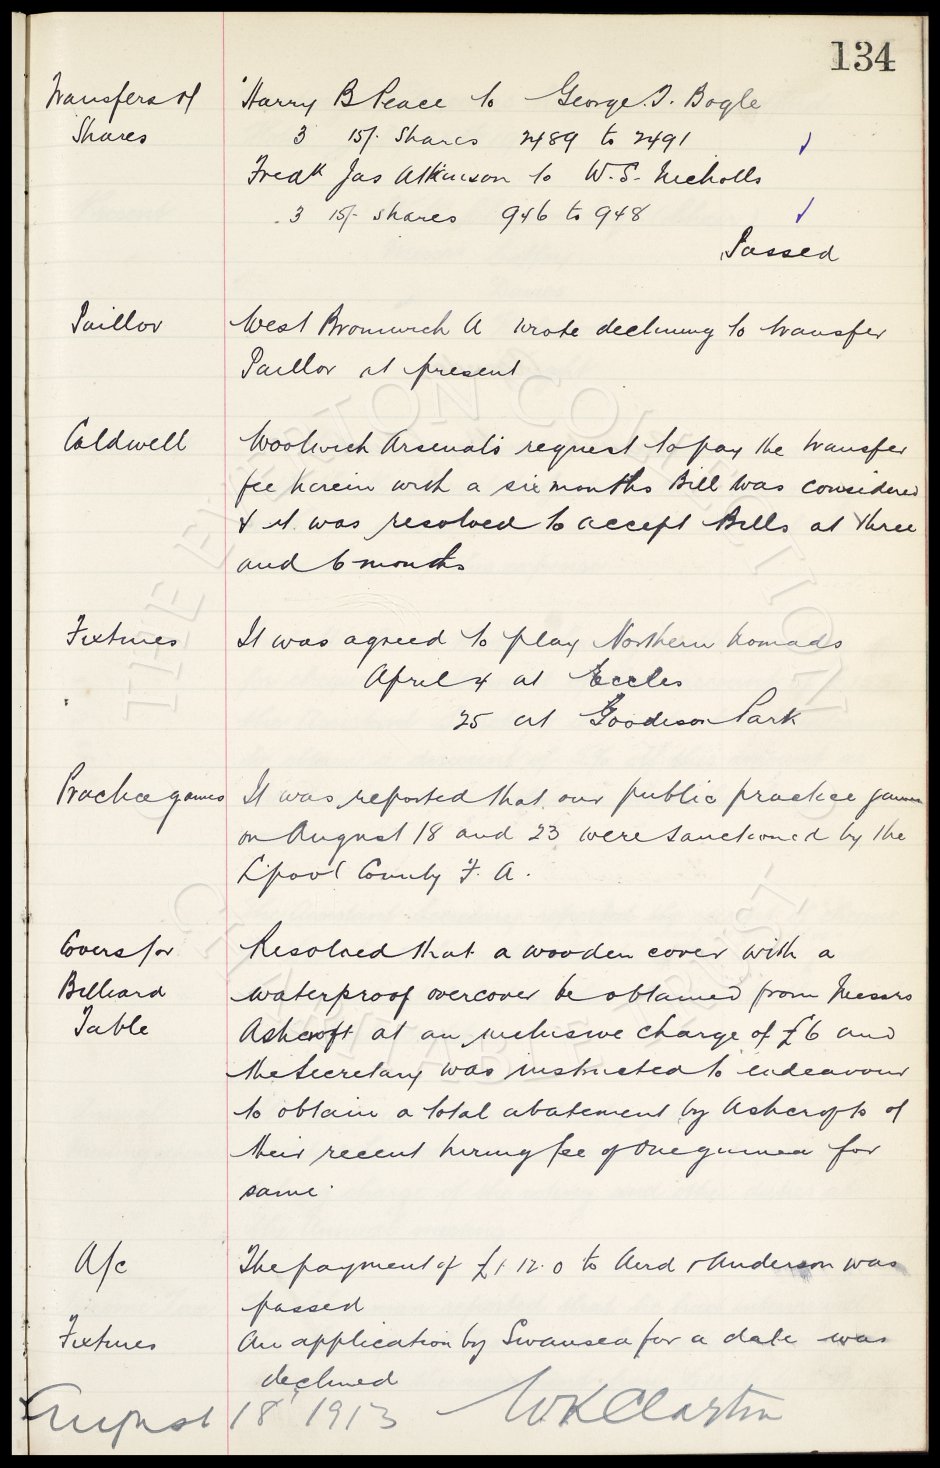 134
Transfers of Harry B Peace to George T. Bogle
Shares 3 15/- shares 2489 to 2491
Fredk Jas Atkinson to W. S. Nicholls
3 15/- shares 946 to 948
Passed
Paillor West Bromwich A wrote declining to transfer
Paillor at present
Caldwell Woolwich Arsenal's request to pay the transfer
fee herein with a six months Bill was considered
& it was resolved to accept Bills at three
and 6 months
Fixtures It was agreed to play Northern Nomads
April 4 at Eccles
25 at Goodison Park
Practice games It was reported that our public practice games
on August 18 and 23 were sanctioned by the
L'pool County F. A.
Covers for Resolved that a wooden cover with a
Billiard waterproof overcover be obtained from Messrs
Table Ashcroft at an inclusive charge of £6 and
the Secretary was instructed to endeavour
to obtain a total abatement by Ashcrofts of
their recent hiring fee of one guinea for
same.
A/c The payment of £1.12.0 to Aird & Anderson was
passed
Fixtures An application by Swansea for a date was
declined
August 18 1913 W R Clayton
THE EVERTON COLLECTION
CHARITABLE TRUST